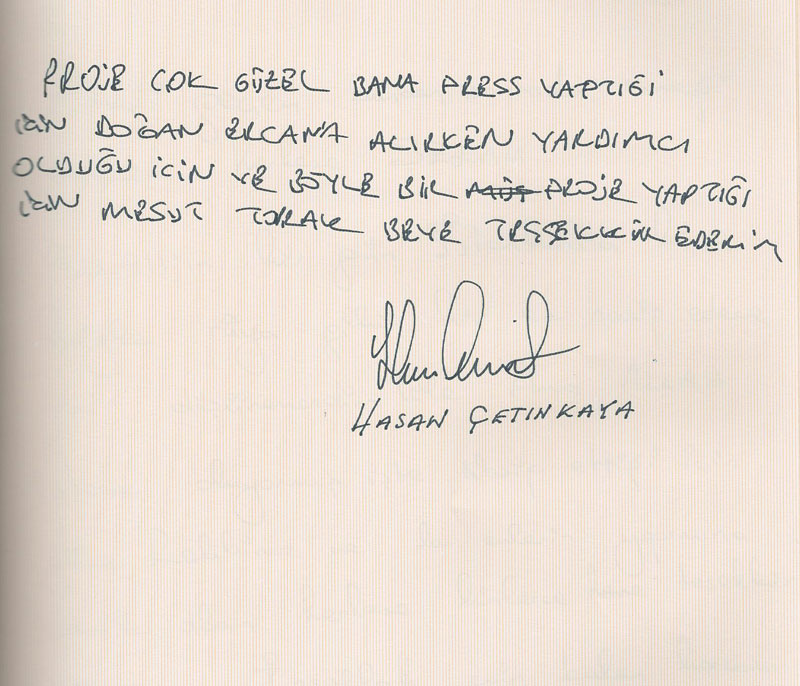 PROJE ÇOK GÜZEL BANA PRESS YAPTIĞI
İÇİN DOĞAN ERCAN'A ALIRKEN YARDIMCI
OLDUĞU İÇİN VE BÖYLE BİR PROJE YAPTIĞI
İÇİN MESUT TOPRAK BEYE TEŞŞEKKÜR EDERİM
HASAN ÇETINKAYA